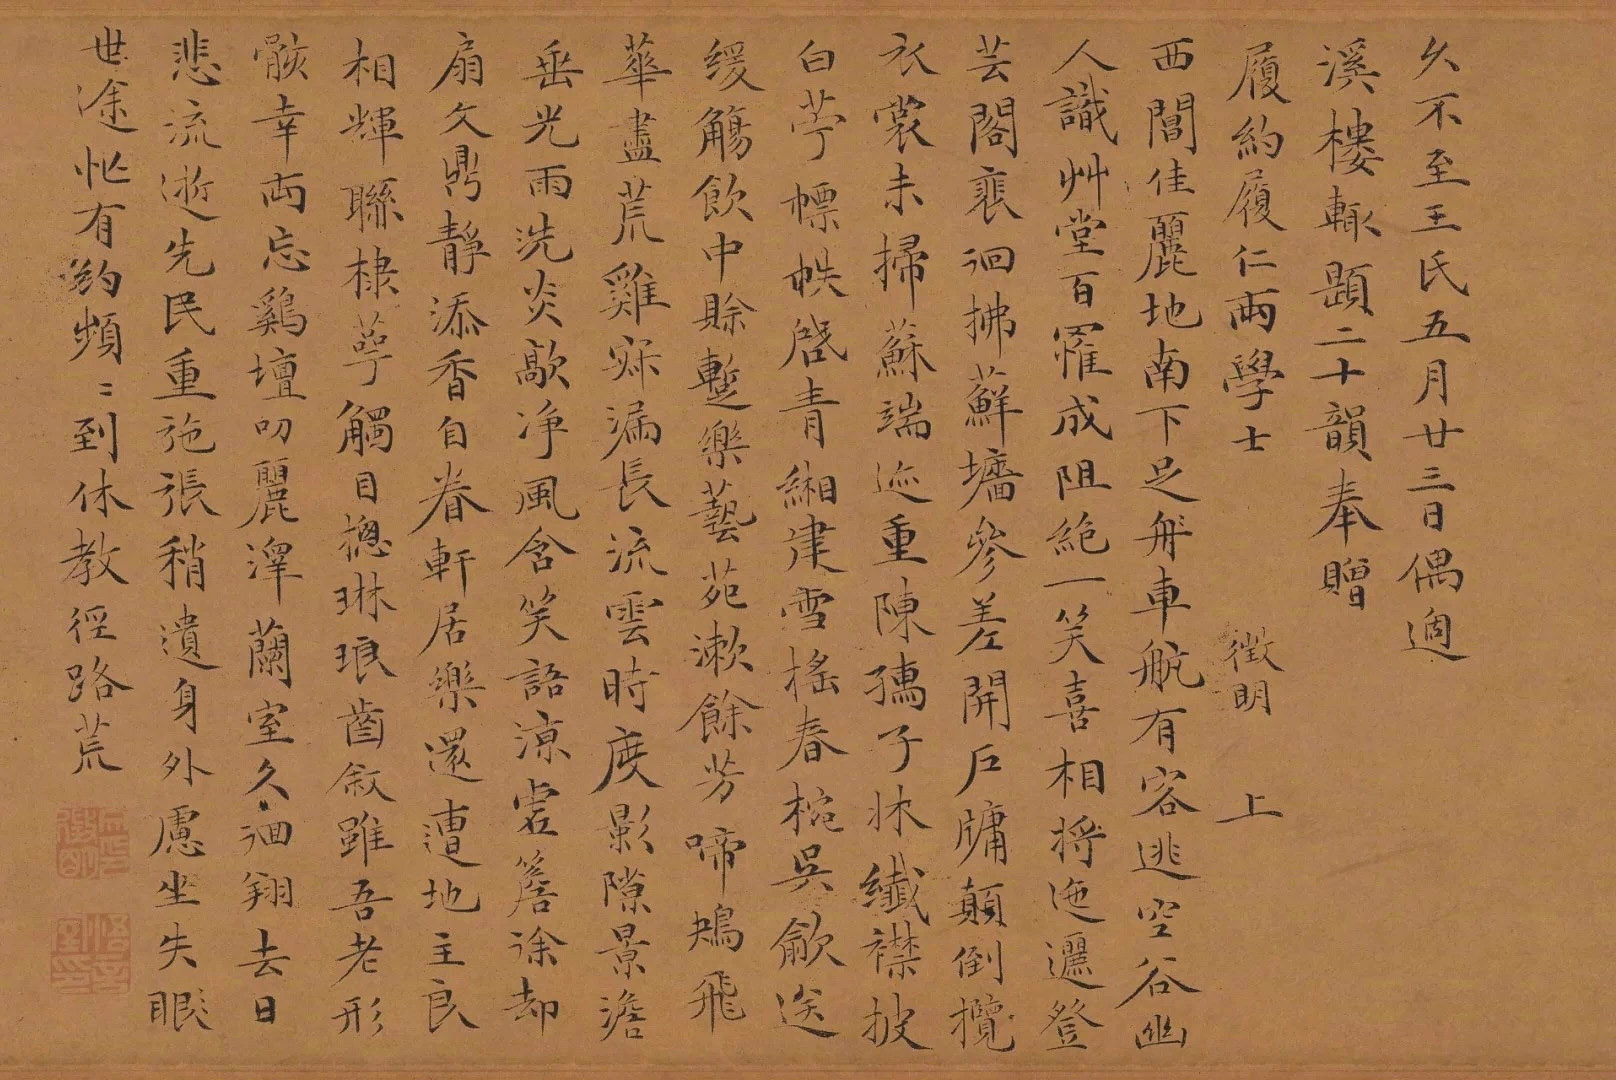 久不至王氏五月廿三日偶過
溪樓輒題二十韻奉贈
履約履仁兩學士 徵明 上
西閶佳麗地南下足舟車航有客逃空谷幽
人識艸堂百罹成阻絶一笑喜相將迤邐登
芸閣裵徊拂蘚墻參差開戶牖顛倒攬
衣裳未掃蘇端迹重陳孺子牀纖襟披
白苧縹帙啓青緗津雪搖春椀吳歈送
緩觴飲中賖蹔樂藝苑漱餘芳啼鴂飛
華盡荒雞寐漏長流雲時度影隙景澹
垂光雨洗炎歊净風含笑語凉宕簷徐却
扇文鼎靜添香自眷軒居樂還遭地主良
相輝聯棣萼觸目摠琳琅齒敘雖吾老形
骸幸兩忘鷄壇叨麗澤蘭室久徊翔去日
悲流逝先民重弛張稍遺身外慮坐失眼
世途忙有約頻〻到休教徑路荒